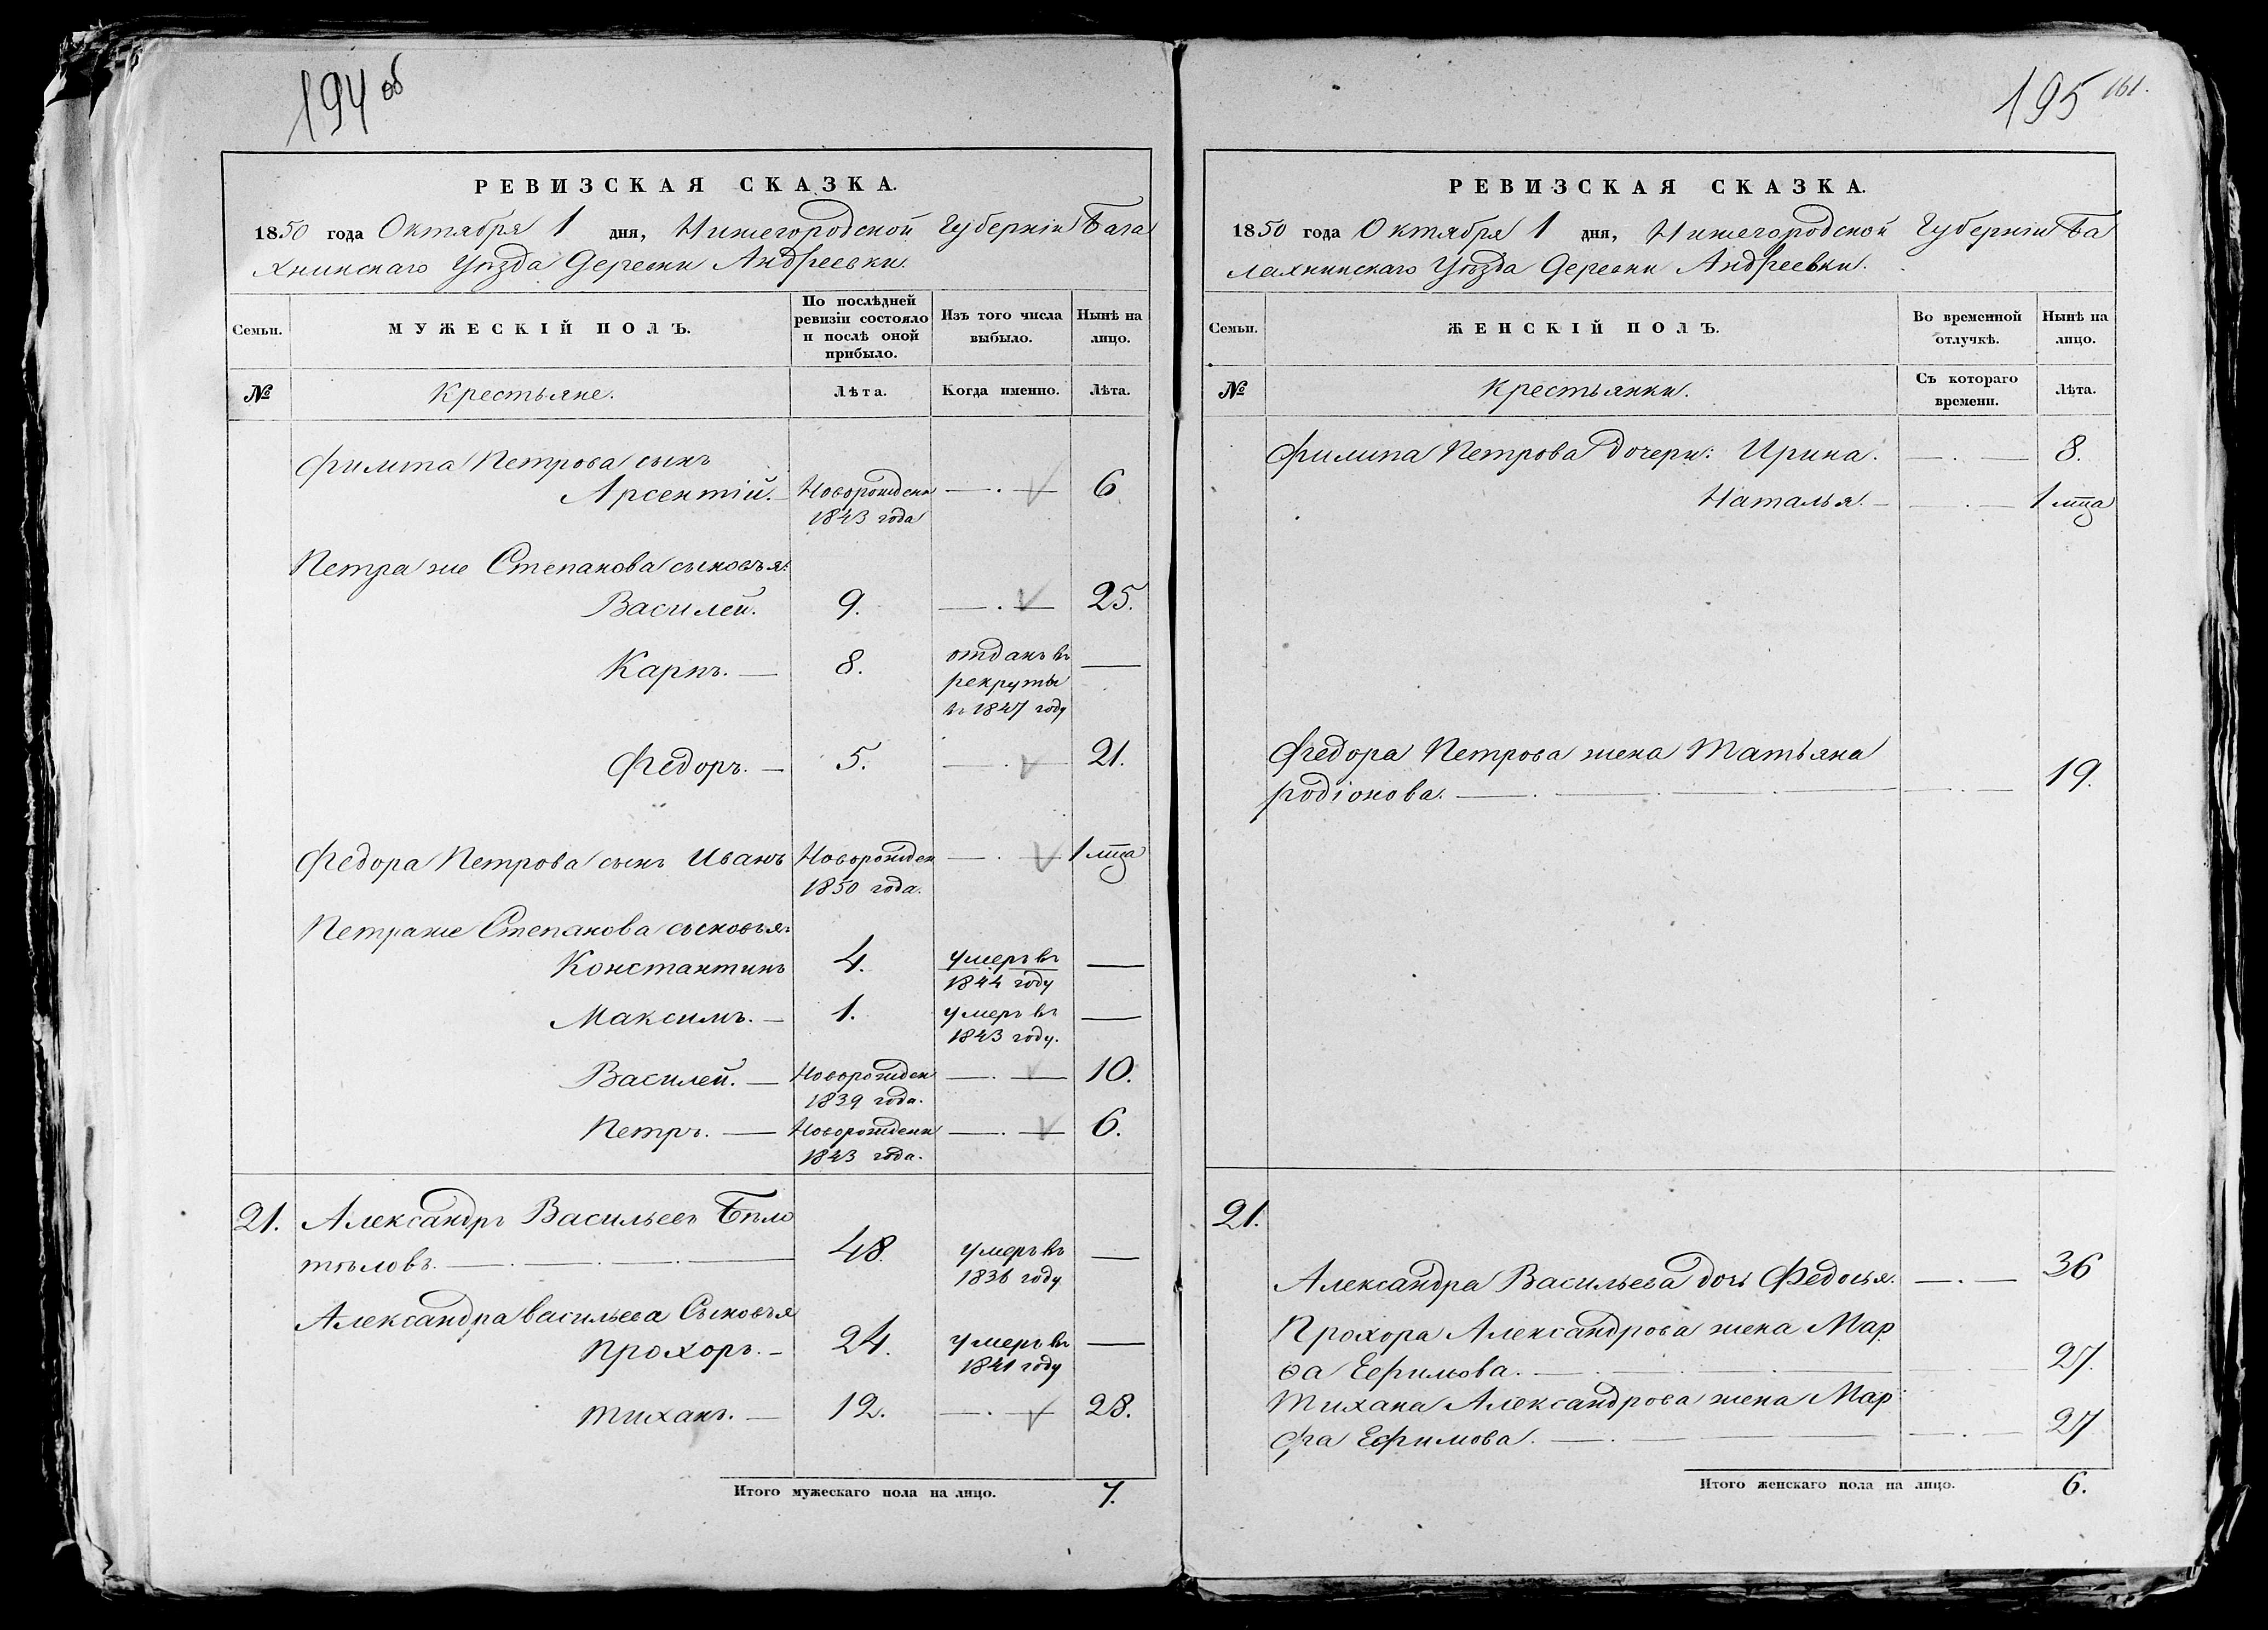 194 об
РЕВИЗСКАЯ СКАЗКА.
1850 года Октября 1 дня, Нижегородской Губернiи Бала
хнинскаго Уѣзда Деревни Андреевки.
Семьи.
МУЖЕСКІЙ ПОЛЪ.
По послѣдней
ревизіи состояло
и послѣ оной
прибыло.
Изъ того числа
выбыло.
Нынѣ на
лицо.
№
Крестьяне.
Лѣта.
Когда именно.
Лѣта.
Филипа Петрова сынъ
Арсентій. Новорожденн 6
1843 года
Петра же Степанова сыновья:
Василей. 9. 25.
Карпъ. 8. отданъ въ
рекруты
въ 1847 году
Федоръ. 5. 21.
Федора Петрова сынъ Иванъ Новорожден 1 мца
1850 года.
Петра же Степанова сыновья
Константинъ 4. умеръ въ
1844 году
Максимъ. 1. умеръ въ
1843 году.
Василей. Новорожден 10.
1839 года.
Петръ. Новорожденн 6.
1843 года.
21. Александръ Васильевъ Бѣло
тѣловъ. 48. умеръ въ
1836 году
Александра васильева Сыновья
Прохоръ. 24. умеръ въ
1841 году
Тиханъ. 12. 28.
Итого мужескаго пола на лицо. 7.
195 161.
РЕВИЗСКАЯ СКАЗКА.
1850 года Октября 1 дня, Нижегородской Губерніи Ба
лахнинскаго Уѣзда Деревни Андреевки.
Семьи.
ЖЕНСКІЙ ПОЛЪ.
Во временной
отлучкѣ.
Нынѣ на
лицо.
№
Крестьянки.
Съ котораго
времени.
Лѣта.
Филипа Петрова дочери: Ирина. 8.
Наталья. 1 мца
Федора Петрова жена Татьяна
родіонова. 19.
21.
Александра Васильева дочь Федосья. 36
Прохора Александрова жена Мар
ѳа Ефимова. 27.
Тихана Александрова жена Мар
фа Ефимова. 27
Итого женскаго пола на лицо. 6.